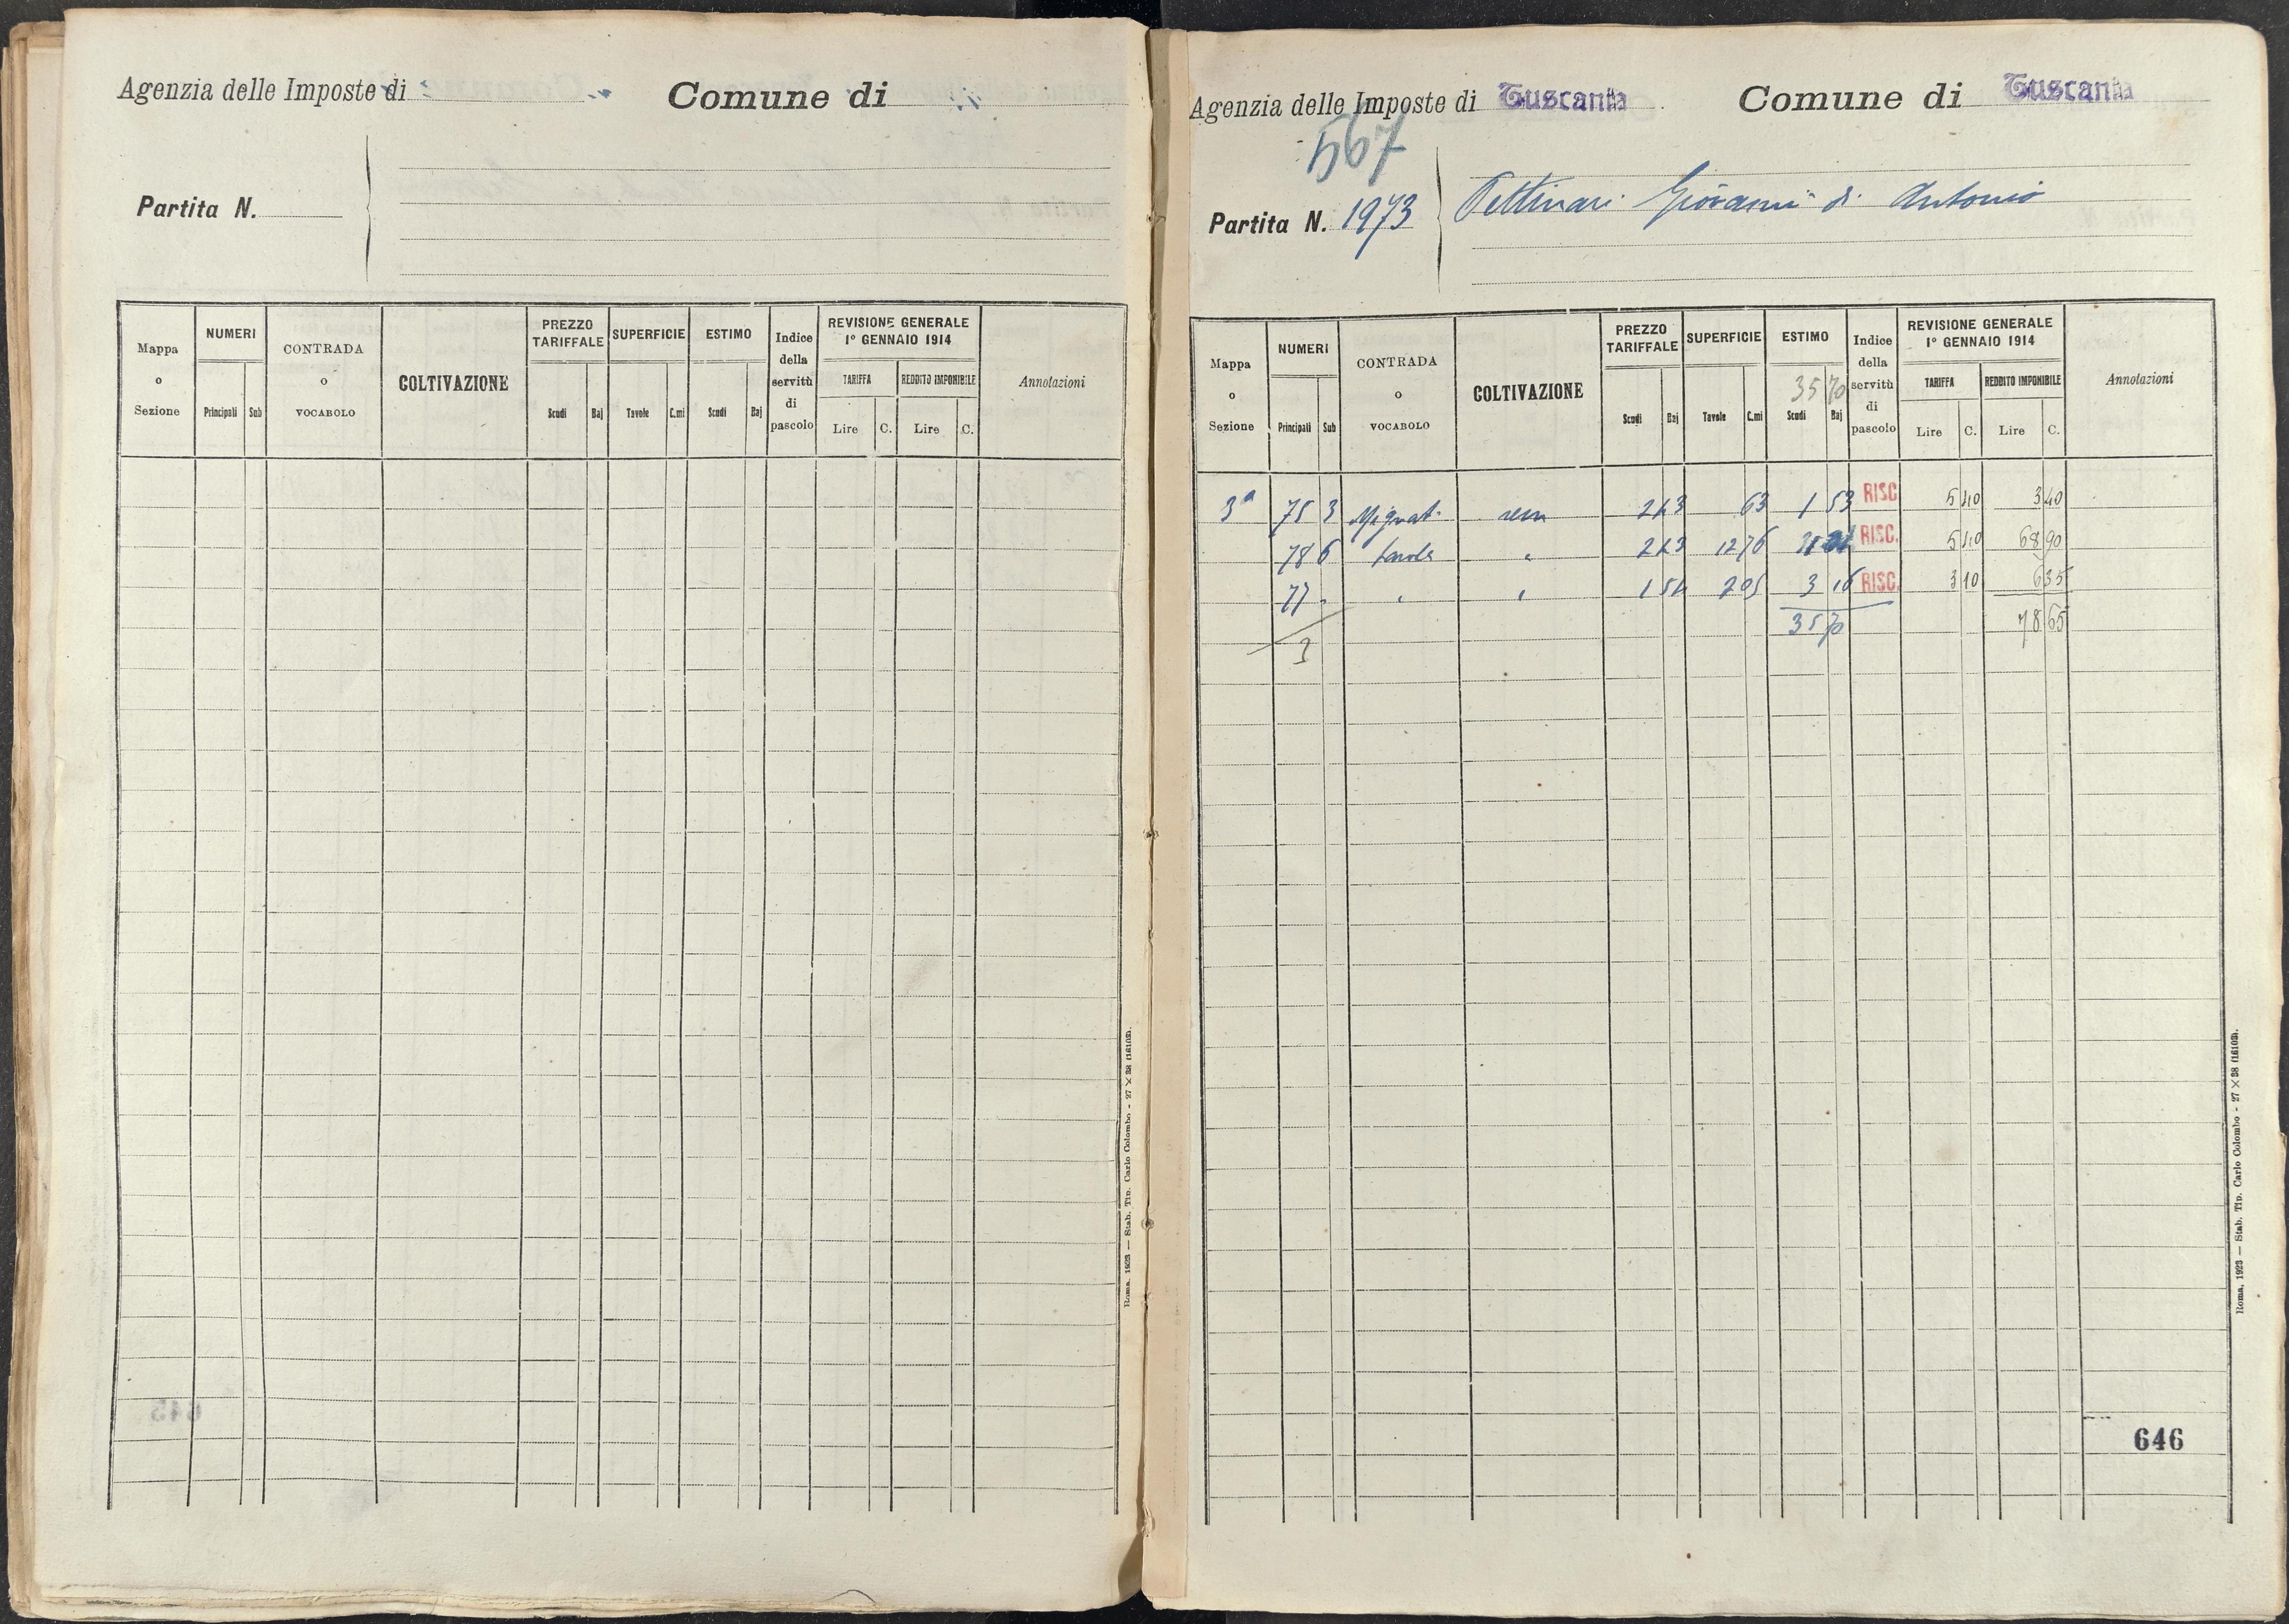 Agenzia delle Imposte di
Comune di
Partita N.
Mappa o Sezione
NUMERI
Principali Sub
CONTRADA o VOCABOLO
COLTIVAZIONE
PREZZO TARIFFALE
Scudi Baj
SUPERFICIE
Tavole C.mi
ESTIMO
Scudi Baj
Indice della servitù di pascolo
REVISIONE GENERALE
1° GENNAIO 1914
TARIFFA
Lire C.
REDDITO IMPONIBILE
Lire C.
Annotazioni
645
Roma, 1923 — Stab. Tip. Carlo Colombo - 27 × 38 (16103).
Agenzia delle Imposte di Tuscania
Comune di Tuscania
567
Partita N. 1973
Pettinari Giovanni di Antonio
Mappa o Sezione
NUMERI
Principali Sub
CONTRADA o VOCABOLO
COLTIVAZIONE
PREZZO TARIFFALE
Scudi Baj
SUPERFICIE
Tavole C.mi
ESTIMO
35 70
Scudi Baj
Indice della servitù di pascolo
REVISIONE GENERALE
1° GENNAIO 1914
TARIFFA
Lire C.
REDDITO IMPONIBILE
Lire C.
Annotazioni
3ª 75 3 sem 2 43 63 1 53 RISC. 5 40 3 40
78 6 " 2 43 12 76 31 01 RISC. 5 40 68 90
77 - " " 1 54 2 05 3 16 RISC. 3 10 6 35
35 70 78 65
3
646
Roma, 1923 — Stab. Tip. Carlo Colombo - 27 × 38 (16103).